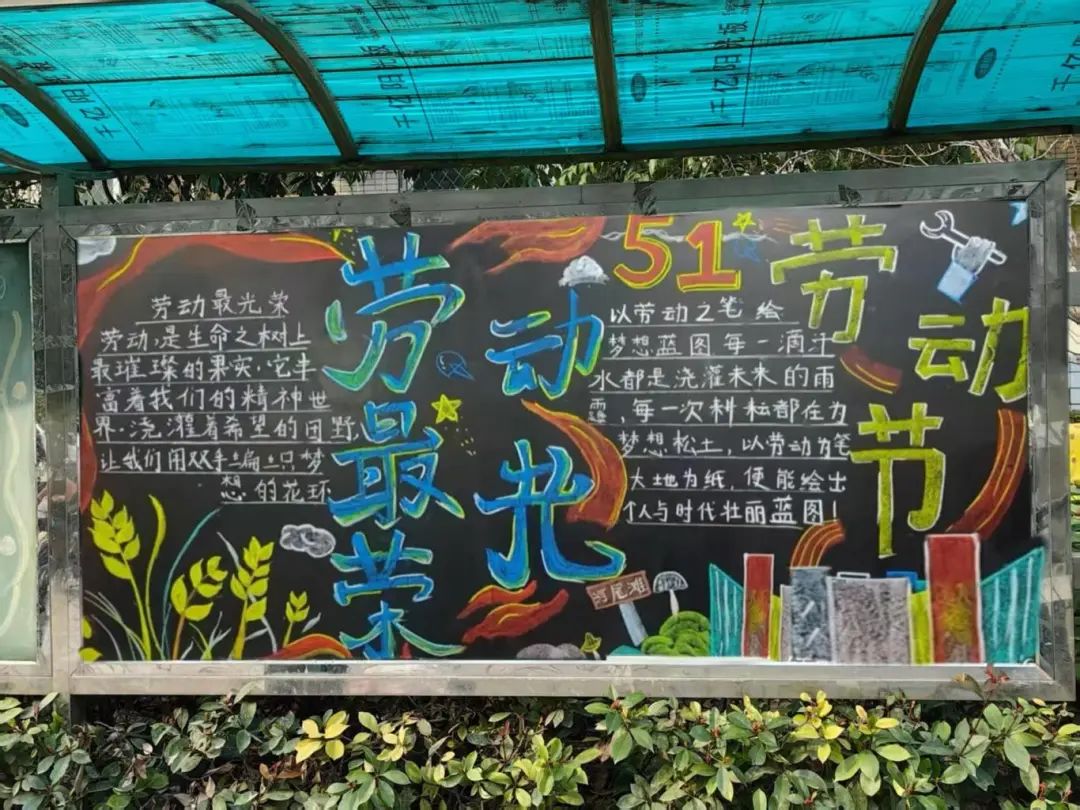 劳动最光荣
劳动,是生命之树上
最璀璨的果实.它丰
富着我们的精神世
界.浇灌着希望的田野,
让我们用双手编织梦
想的花环
劳动
最光
荣
51劳动节
以劳动之笔绘
梦想蓝图每一滴汗
水都是浇灌未来的雨
露,每一次耕耘都在为
梦想松土,以劳动为笔
大地为纸,便能绘出
个人与时代壮丽蓝图!
尾滩